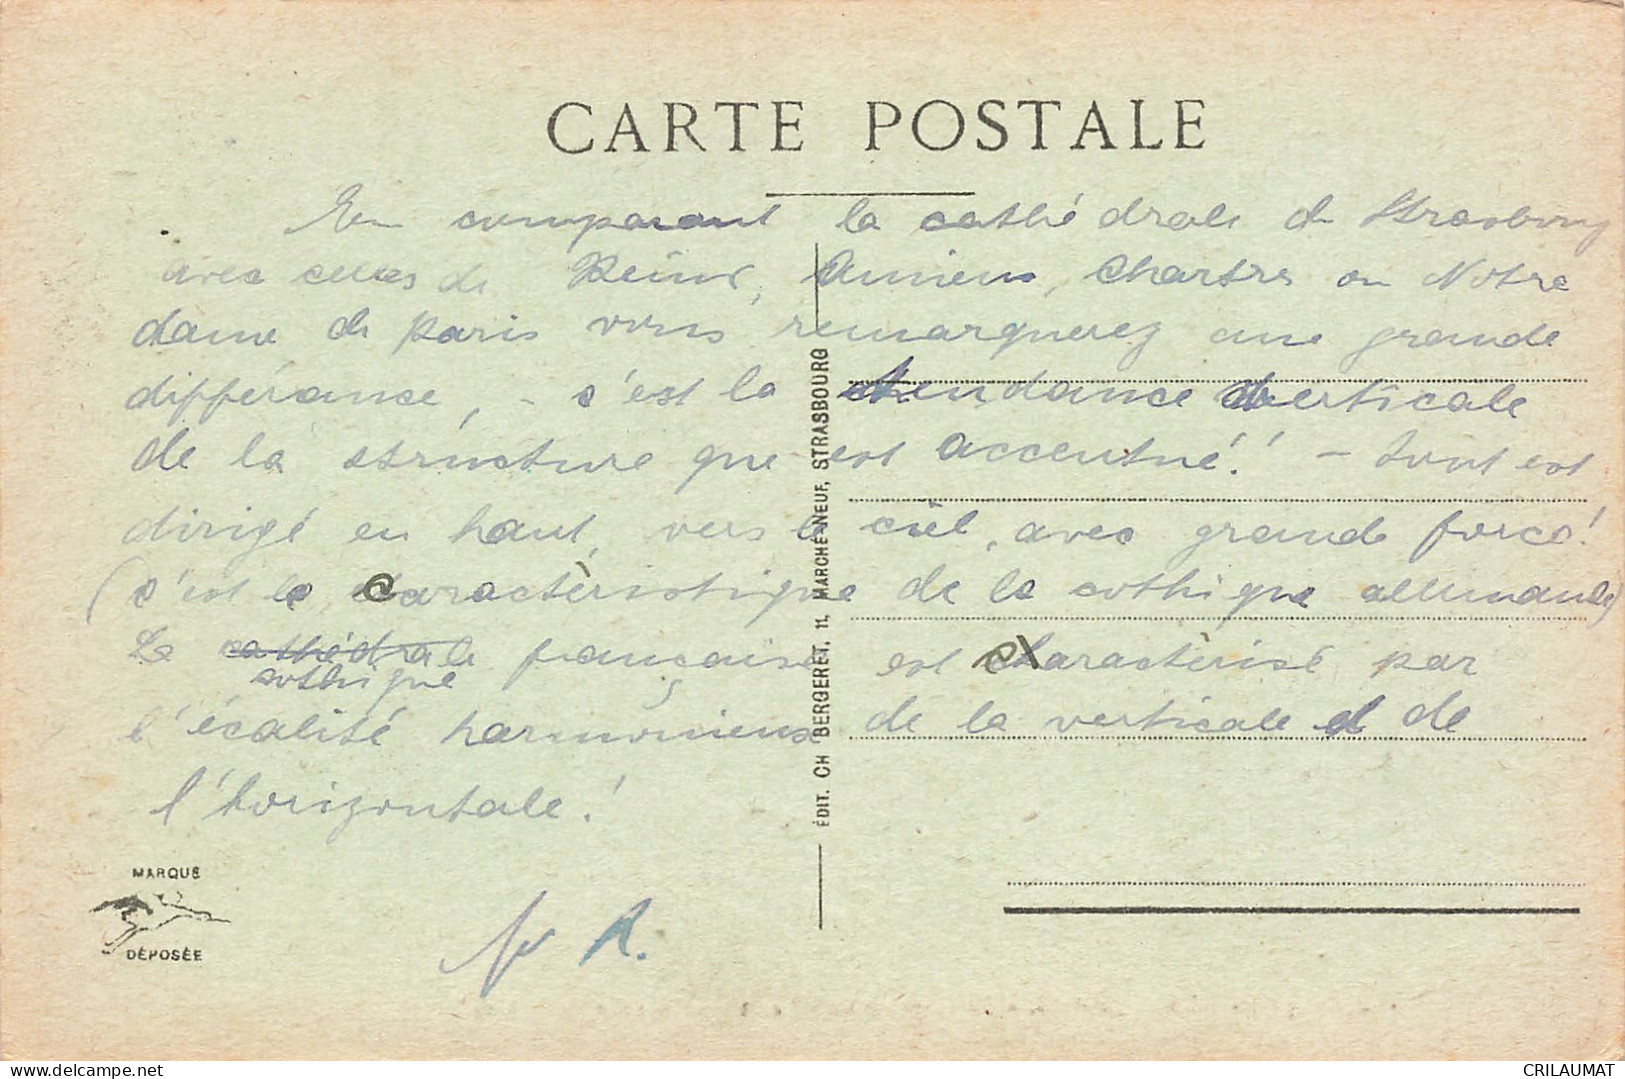 CARTE POSTALE
En comparant la cathédrale de Strasbourg
avec celles de Reims, Amiens, Chartres ou Notre
dame de Paris vous remarquerez une grande
différance, - s'est la tendance verticale
de la structure que est accentué! - tout est
dirigé en haut, vers le ciel, avec grande force!
(s'est le caractèristique de la gothique allemande)
Le cathédrale française est charactèrisé par
gothique
l'écalité harmonieux de la verticale et de
l'horizontale!
ÉDIT. CH BERGERET, 11, MARCHÉ-NEUF, STRASBOURG
MARQUE
DÉPOSÉE
R.
www.delcampe.net
CRILAUMAT